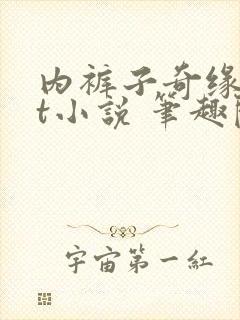 内裤子奇缘
t小说 筆趣
宇宙第一紅